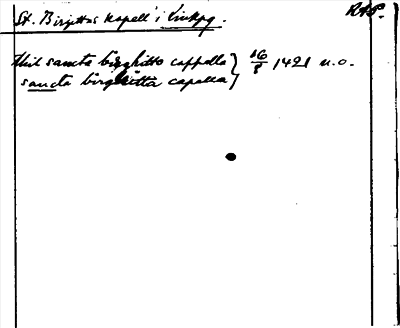 St. Birgittas kapell i Linkpg. RAP.
thil sancta birghitto cappello } 16/8 1421 u.o.
sancta birghitta capella